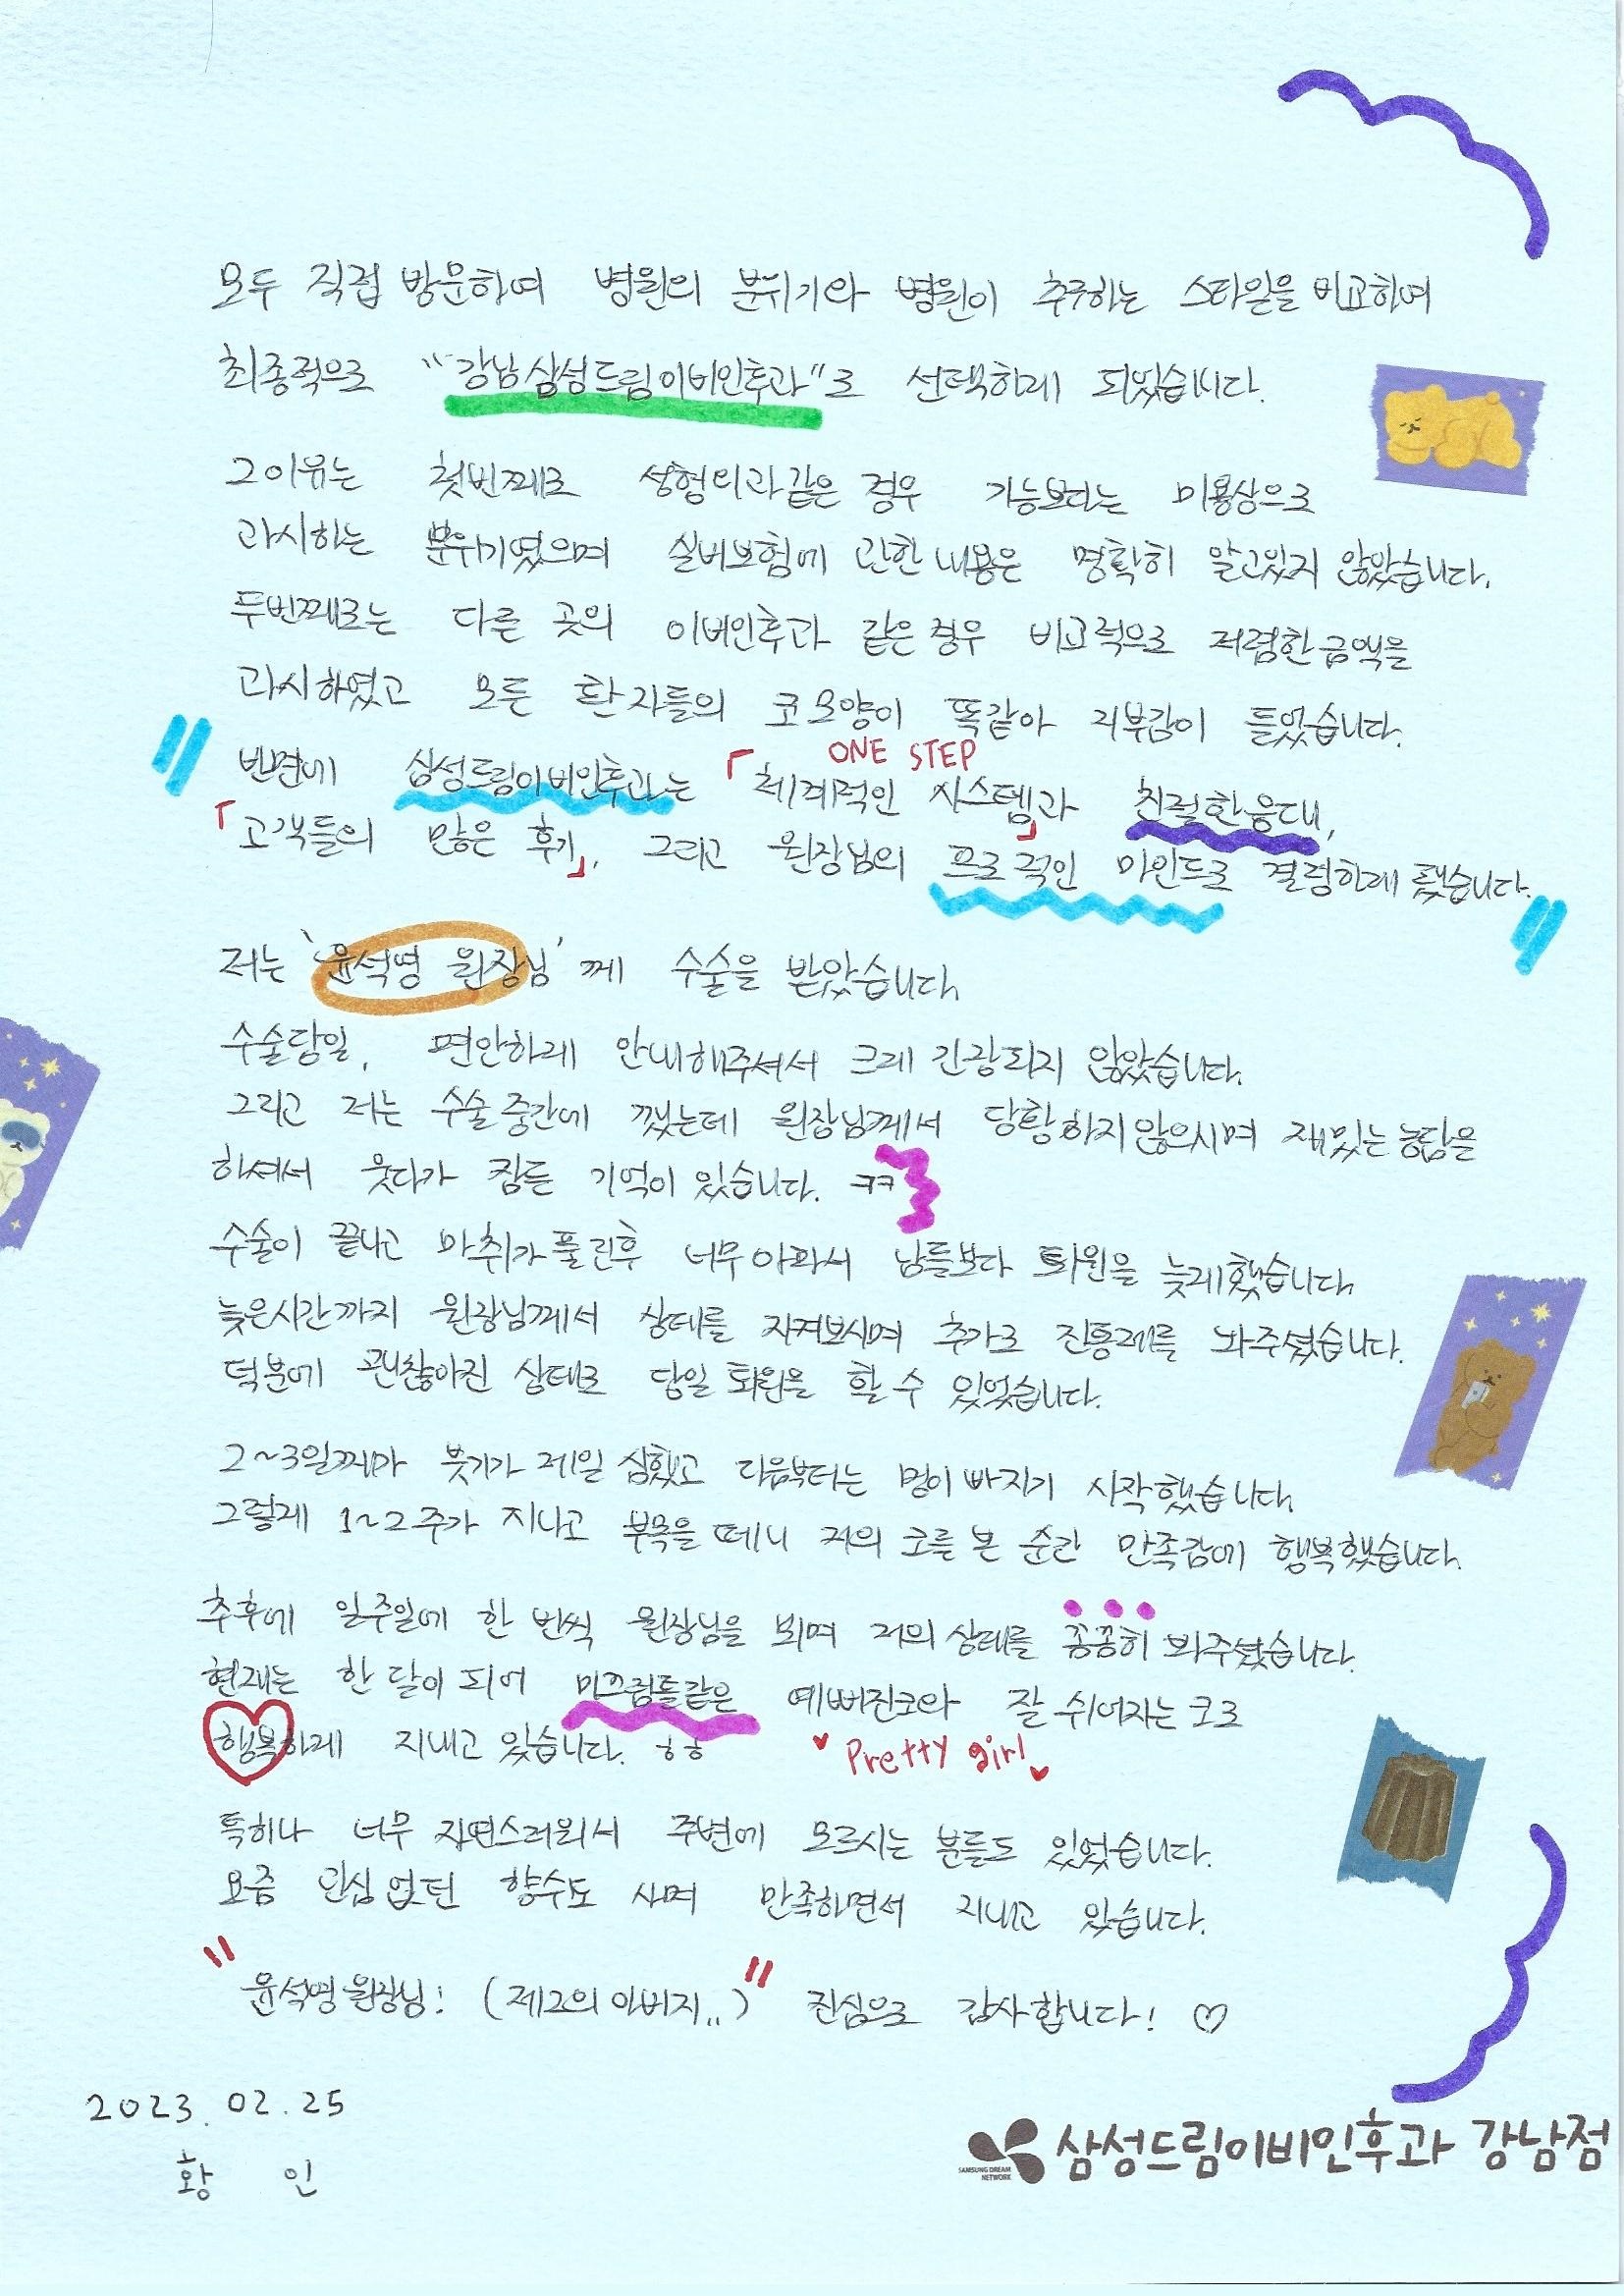 모두 직접 방문하여 병원의 분위기와 병원이 추구하는 스타일을 비교하여
최종적으로 "강남삼성드림이비인후과"로 선택하게 되었습니다.
그이유는 첫번째로 성형외과같은 경우 기능보다는 미용상으로
과시하는 분위기였으며 실비보험에 관한내용은 명확히 알고있지 않았습니다.
두번째로는 다른 곳의 이비인후과 같은경우 비교적으로 저렴한금액을
과시하였고 모든 환자들의 코모양이 똑같아 거부감이 들었습니다.
ONE STEP
반면에 삼성드림이비인후과는 「체계적인 시스템」과 친절한응대,
「고객들의 많은 후기」, 그리고 원장님의 프로적인 마인드로 결정하게 됐습니다.
저는 '윤석영 원장님'께 수술을 받았습니다.
수술당일, 편안하게 안내해주셔서 크게 긴장되지 않았습니다.
그리고 저는 수술중간에 깼는데 원장님께서 당황하지않으시며 재밌는농담을
하셔서 웃다가 잠든 기억이 있습니다. ㅋㅋ
수술이 끝나고 마취가풀린후 너무아파서 남들보다 퇴원을 늦게했습니다
늦은시간까지 원장님께서 상태를 지켜보시며 추가로 진통제를 놔주셨습니다.
덕분에 괜찮아진 상태로 당일퇴원을 할수 있었습니다.
2~3일째가 붓기가 제일 심했고 다음부터는 멍이빠지기 시작했습니다.
그렇게 1~2주가 지나고 부목을 떼니 저의 코를 본 순간 만족감에 행복했습니다.
추후에 일주일에 한 번씩 원장님을 뵈며 저의상태를 꼼꼼히 봐주셨습니다.
현재는 한달이 되어 미끄럼틀같은 예뻐진코와 잘 쉬어지는코로
행복하게 지내고 있습니다. ㅎㅎ ♥ Pretty girl ♥
특히나 너무 자연스러워서 주변에 모르시는 분들도 있었습니다.
요즘 관심없던 향수도 사며 만족하면서 지내고 있습니다.
"윤석영원장님! (제2의아버지..)" 진심으로 감사합니다! ♡
2023. 02. 25
황 인
SAMSUNG DREAM NETWORK 삼성드림이비인후과 강남점